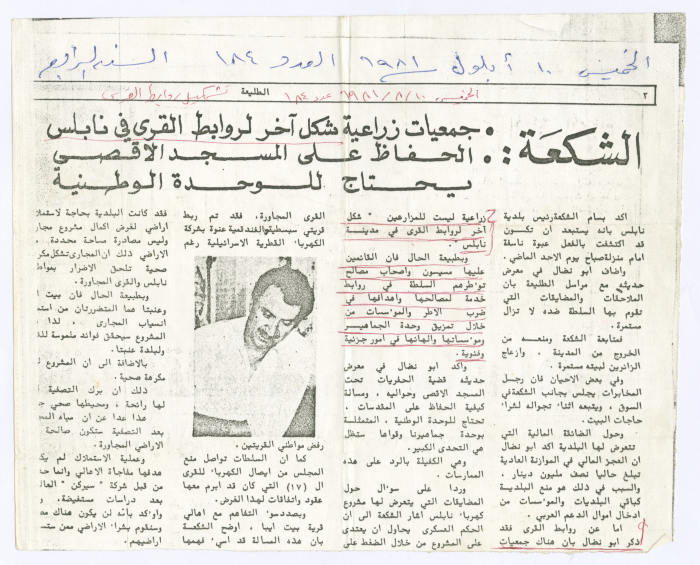 الخميس ١٠ أيلول ١٩٨١ العدد ١٨٤ السنة الرابعة
٢
الخميس ١٠/٨/١٩٨١ عدد ١٨٤
الطليعة
تشكيل روابط القرى
الشكعة :
• جمعيات زراعية شكل آخر لروابط القرى في نابلس
• الحفاظ على المسجد الاقصى
يحتاج للوحدة الوطنية
اكد بسام الشكعة رئيس بلدية
نابلس بانه يستبعد ان تكون
قد اكتشفت بالفعل عبوة ناسفة
امام منزله صباح يوم الاحد الماضي .
واضاف ابو نضال في معرض
حديثه مع مراسل الطليعة بان
الملاحقات والمضايقات التي
تقوم بها السلطة ضده لا تزال
مستمرة .
فمتابعة الشكعة ومنعه من
الخروج من المدينة . وازعاج
الزائرين لبيته مستمرة .
وفي بعض الاحيان فان رجل
المخابرات يجلس بجانب الشكعة في
السوق ، ويتبعه اثناء تجواله لشراء
حاجات البيت .
وحول الضائقة المالية التي
تتعرض لها البلدية اكد ابو نضال
ان العجز المالي في الموازنة العادية
تبلغ حاليا نصف مليون دينار ،
والسبب في ذلك هو منع البلدية
كباقي البلديات والمؤسسات من
ادخال اموال الدعم العربي .
اما عن روابط القرى فقد
ذكر ابو نضال بان هناك جمعيات
زراعية ليست للمزارعين " شكل
آخر لروابط القرى في مدينة
نابلس " .
وبطبيعة الحال فان القائمين
عليها مسيسون واصحاب مصالح
توءطرهم السلطة في روابط
خدمة لمصالحها واهدافها في
ضرب الاطر والموءسسات من
خلال تمزيق وحدة الجماهير
وموءسساتها والهائها في امور جزئية
وفئوية .
واكد ابو نضال في معرض
حديثه قضية الحفريات تحت
المسجد الاقصى وحواليه ، ومسالة
كيفية الحفاظ على المقدسات ،
تحتاج للوحدة الوطنية ، المتمثلة
بوحدة جماهيرنا وقواها ستظل
هي التحدي الكبير .
وهي الكفيلة بالرد على هذه
الممارسات .
وردا على سوءال حول
المضايقات التي يتعرض لها مشروع
كهرباء نابلس اشار الشكعة الى ان
الحكم العسكري يحاول ان يعتدي
على المشروع من خلال الضغط على
القرى المجاورة . فقد تم ربط
قريتي سبسطية والفندقمية عنوة بشركة
الكهرباء القطرية الاسرائيلية رغم
رفض مواطني القريتين .
كما ان السلطات تواصل منع
المجلس من ايصال الكهرباء للقرى
ال (١٧) التي كان قد ابرم معها
عقود واتفاقات لهذا الغرض .
وبصدد سوء التفاهم مع اهالي
قرية بيت ايبا ، اوضح الشكعة
بان هذه المسالة قد اسيء فهمها
فقد كانت البلدية بحاجة لاستملا
اراضي لغرض اكمال مشروع مجار
وليس مصادرة ساحة محددة .
الاراضي ذلك ان المجاري تشكل مكر
صحية تلحق الاضرار بمواط
نابلس والقرى المجاورة .
وبطبيعة الحال فان بيت ا
وعنبتا هما المتضررتان من است
انسياب المجاري . لذا ،
المشروع سيحقق فوائد ملموسة للـ
ولبلدة عنبتا .
بالاضافة الى ان المشروع ا
مكرهة صحية .
ذلك ان برك التصفية
لها رائحة ، ومحيطها صحي جـ
هذا عدا عن ان مياه المجـ
بعد التصفية ستكون صالحة
الاراضي المجاورة .
وعملية الاستملاك لم يك
هدفها مفاجاة الاهالي وانما حد
من قبل شركة " سيركن " العالـ
بعد دراسات مستفيضة .
واوءكد بأنه لن يكون هناك مص
وسنقوم بشراء الاراضي ممن ستمـ
اراضيهم .